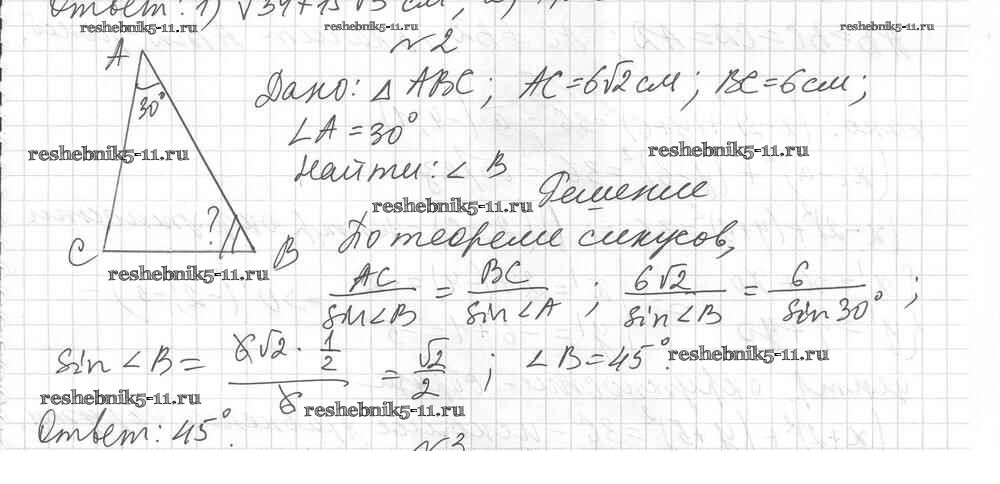 Ответ: 1) √34+15√3 см;
reshebnik5-11.ru reshebnik5-11.ru reshebnik5-11.ru
№2
A
30°
Дано: △ ABC; AC=6√2 см; BC=6см;
∠A=30°
reshebnik5-11.ru reshebnik5-11.ru
Найти: ∠ B
reshebnik5-11.ru
Решение
?
C B
По теореме синусов,
reshebnik5-11.ru
AC/sin∠B = BC/sin∠A ; 6√2/sin∠B = 6/sin30° ;
sin∠B = 6√2 · 1/2 / 6 = √2/2 ; ∠B=45°.
reshebnik5-11.ru
reshebnik5-11.ru
reshebnik5-11.ru
Ответ: 45°.
№3